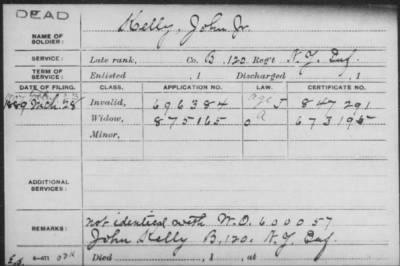 DEAD
NAME OF SOLDIER: Kelly, John Jr.
SERVICE: Late rank, Co. B, 120 Reg't N.Y. Inf.
TERM OF SERVICE: Enlisted , 1 Discharged , 1
DATE OF FILING. CLASS. APPLICATION NO. LAW. CERTIFICATE NO.
1889 Mch. 28 Invalid, 696384 J 847291
Widow, 875165 673195
Minor,
ADDITIONAL SERVICES:
REMARKS: not identical with W.O. 600057
John Kelly B, 120, N.Y. Inf.
Died , 1 , at